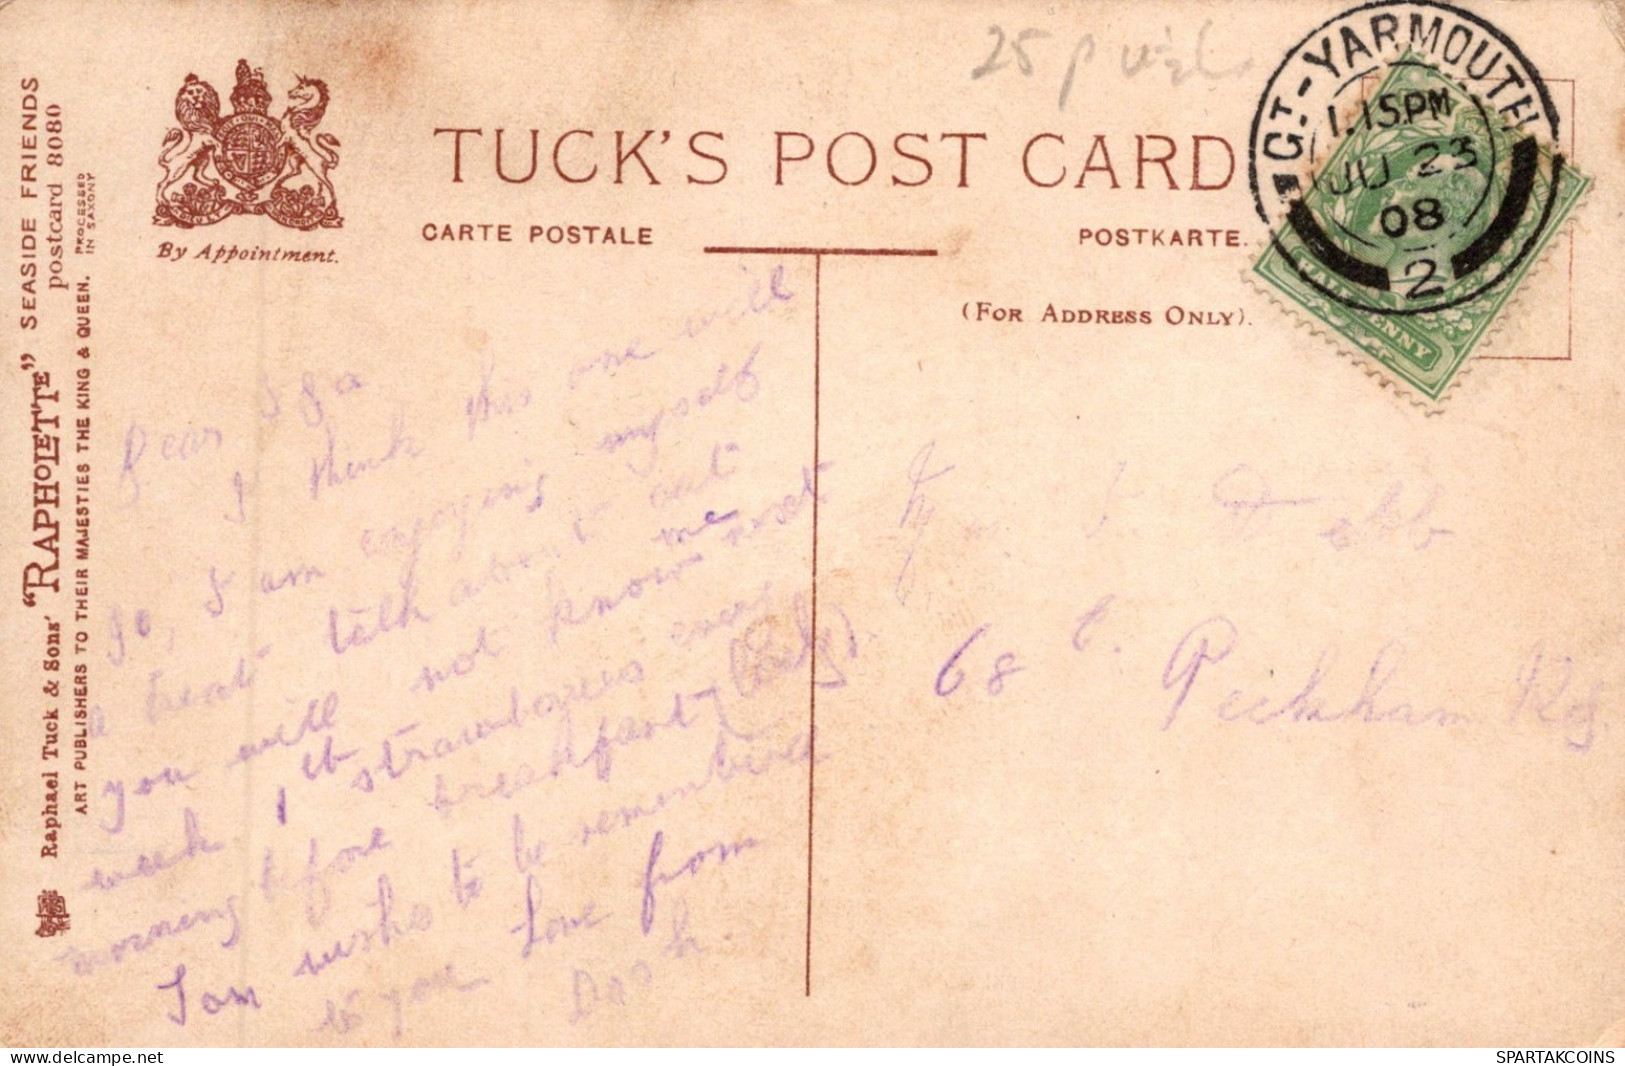 25
GT.-YARMOUTH
1.15PM
JU 23
08
2
HALFPENNY
TUCK'S POST CARD
CARTE POSTALE
POSTKARTE.
(FOR ADDRESS ONLY).
By Appointment.
Raphael Tuck & Sons' "RAPHOLETTE" SEASIDE FRIENDS postcard 8080
ART PUBLISHERS TO THEIR MAJESTIES THE KING & QUEEN.
PROCESSED
IN SAXONY
Dear
I think this one will
go, I am enjoying myself
a treat talk about out
you will not know me next
week, 1 lb strawberries every
morning before breakfast,
Tom wishes to be remembered
to you Love from
68
Peckham Rd
www.delcampe.net
SPARTAKCOINS